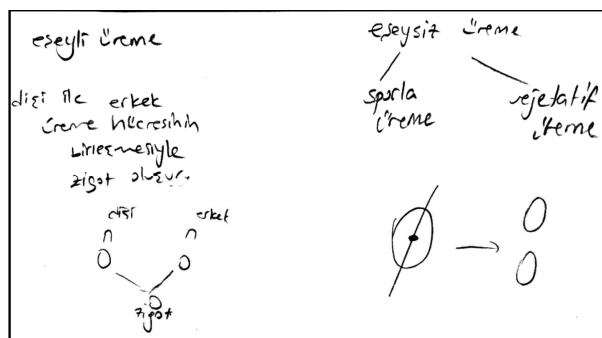 eşeyli üreme
dişi ile erkek
üreme hücresinin
birleşmesiyle
zigot oluşur.
dişi erkek
n n
zigot
eşeysiz üreme
sporla
üreme
vejetatif
üreme